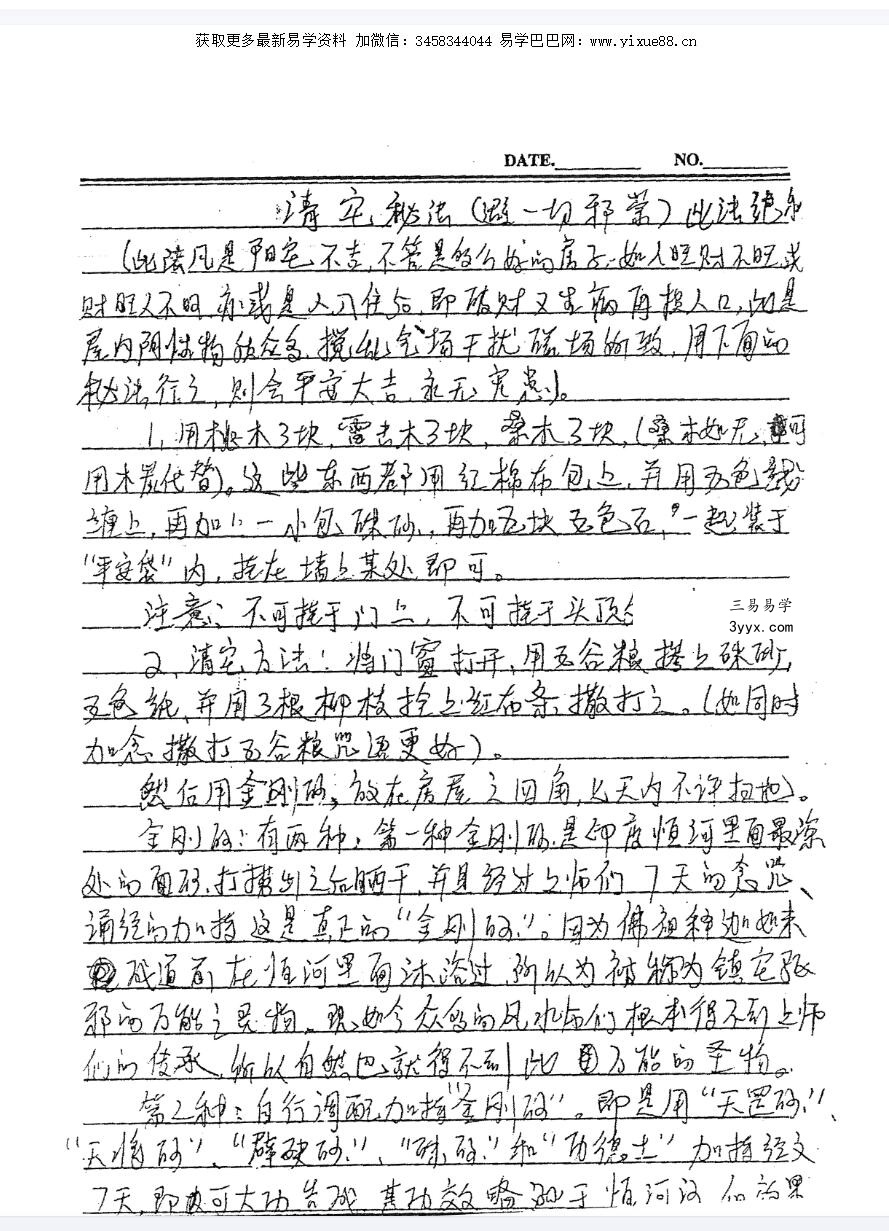 获取更多最新易学资料 加微信：3458344044 易学巴巴网：www.yixue88.cn
DATE. NO.
清宅秘法（避一切邪祟）此法绝
（此法凡是阳宅不吉，不管是多么好的房子，如人旺财不旺或
财旺人不旺，亦或是人入住后，即破财又生病再损人口，均是
屋内阴性物质众多，搅乱气场干扰磁场所致，用下面的
秘法行之，则会平安大吉，永无灾患）。
1，用桃木3块，雷击木3块，桑木3块，（桑木如无，可
用木炭代替）。这些东西都用红棉布包上，并用五色线
缠上，再加上一小包硃砂，再加五块五色石，一起装于
“平安袋”内，挂在墙上某处即可。
注意：不可挂于门上，不可挂于头顶
三易易学
3yyx.com
2，清宅方法：将门窗打开，用五谷粮拌上硃砂，
五色纸，并用3根柳枝拴上红布条，撒打之。（如同时
加念撒打五谷粮咒语更好）。
然后用金刚砂，放在房屋之四角，七天内不许扫地）。
金刚砂：有两种，第一种金刚砂是印度恒河里面最深
处的面砂，打捞出之后晒干，并且经过上师们7天的念咒、
诵经的加持这是真正的“金刚砂”。因为佛祖释迦如来
成道前在恒河里面沐浴过，所以为被称为镇宅驱
邪的万能之灵物、现如今众多的风水师们根本得不到上师
们的传承，所以自然也就得不到此万能的圣物。
第2种：自行调配加持“金刚砂”。即是用“天罡砂”、
“天将砂”、“辟砂”、“硃砂”和“功德土”加持经文
7天，即可大功告成，其功效略砂于恒河沙的效果